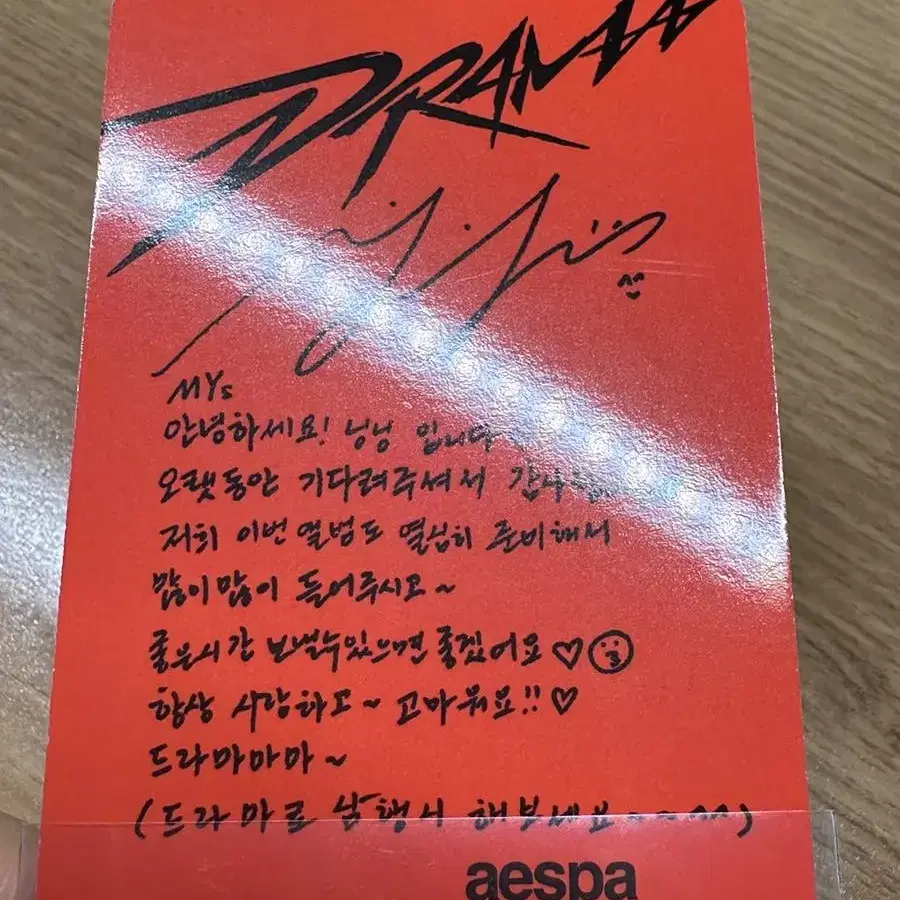 DRAMA
MYs
안녕하세요! 닝닝 입니다
오랫동안 기다려주셔서
저희 이번 앨범도 열심히 준비해서
많이많이 들어주시오~
좋은시간 보낼수있으면 좋겠어요♡
항상 사랑하고~ 고마워요!!♡
드라마마마~
(드라마로 삼행시 해보세요 ~~)
aespa